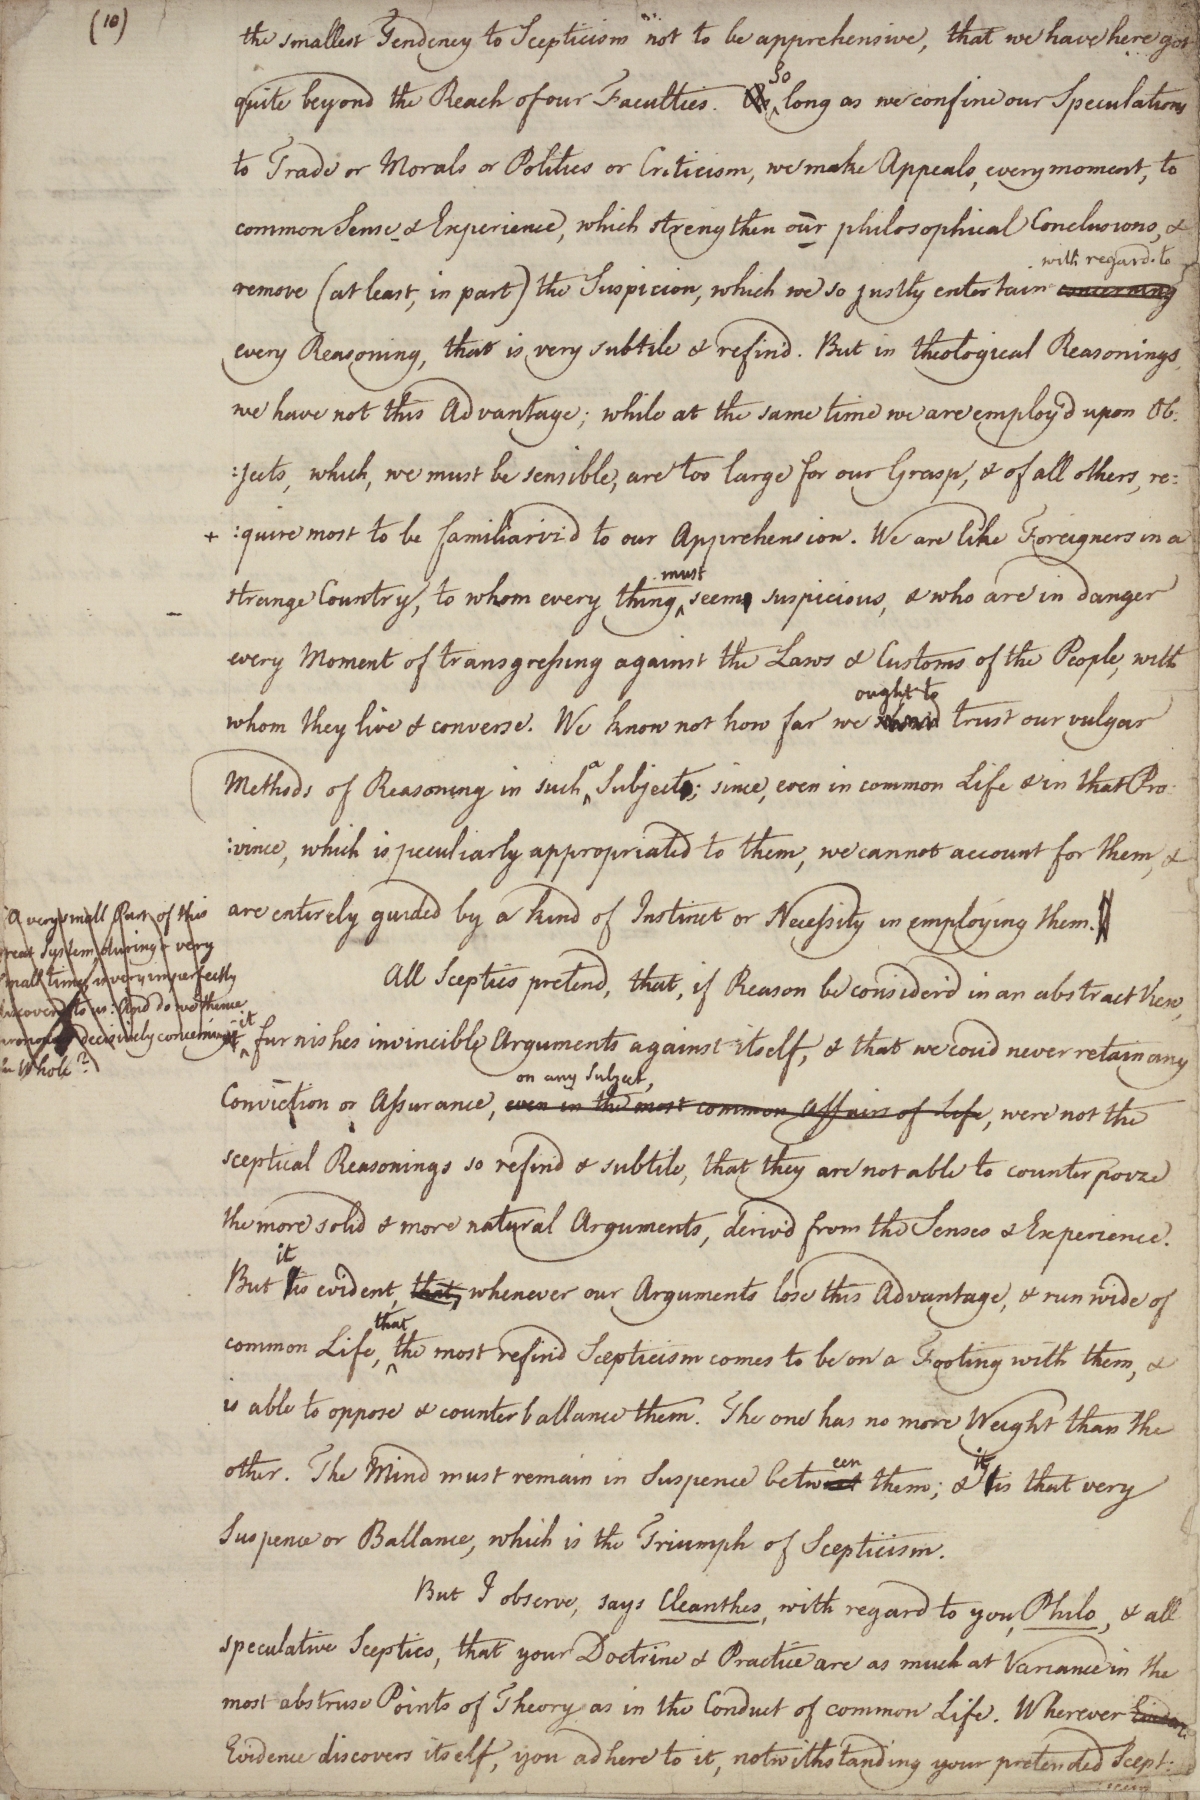 (10)
the smallest Tendency to Scepticism not to be apprehensive, that we have here got
quite beyond the Reach of our Faculties. So long as we confine our Speculations
to Trade or Morals or Politics or Criticism, we make Appeals, every moment, to
common Sense & Experience, which strengthen our philosophical Conclusions, &
with regard to
remove (at least, in part) the Suspicion, which we so justly entertain concerning
every Reasoning, that is very subtile & refin'd. But in theological Reasonings,
we have not this Advantage; while at the same time we are employ'd upon Ob:
:jects, which, we must be sensible, are too large for our Grasp, & of all others, re:
+ :quire most to be familiariz'd to our Apprehension. We are like Foreigners in a
must
strange Country, to whom every thing seem suspicious, & who are in danger
every Moment of transgressing against the Laws & Customs of the People, with
ought to
whom they live & converse. We know not how far we shoud trust our vulgar
a
Methods of Reasoning in such Subject; since, even in common Life & in that Pro:
:vince, which is peculiarly appropriated to them, we cannot account for them, &
are entirely guided by a kind of Instinct or Necessity in employing them.
A very small Part of this
great System, during a very
small time, is very imperfectly
discover'd to us: And do we thence
pronounce decisively concerning
the Whole?
All Sceptics pretend, that, if Reason be consider'd in an abstract View,
it
furnishes invincible Arguments against itself, & that we coud never retain any
on any Subject,
Conviction or Assurance, even in the most common Affairs of Life, were not the
sceptical Reasonings so refin'd & subtile, that they are not able to counterpoize
the more solid & more natural Arguments, deriv'd from the Senses & Experience.
it
But is evident, that, whenever our Arguments lose this Advantage, & run wide of
that
common Life, the most refin'd Scepticism comes to be on a Footing with them, &
is able to oppose & counterballance them. The one has no more Weight than the
een it
other. The Mind must remain in Suspence betwixt them; & tis that very
Suspence or Ballance, which is the Triumph of Scepticism.
But I observe, says Cleanthes, with regard to you, Philo, & all
speculative Sceptics, that your Doctrine & Practice are as much at Variance in the
most abstruse Points of Theory as in the Conduct of common Life. Wherever
Evidence discovers itself, you adhere to it, notwithstanding your pretended Scept: